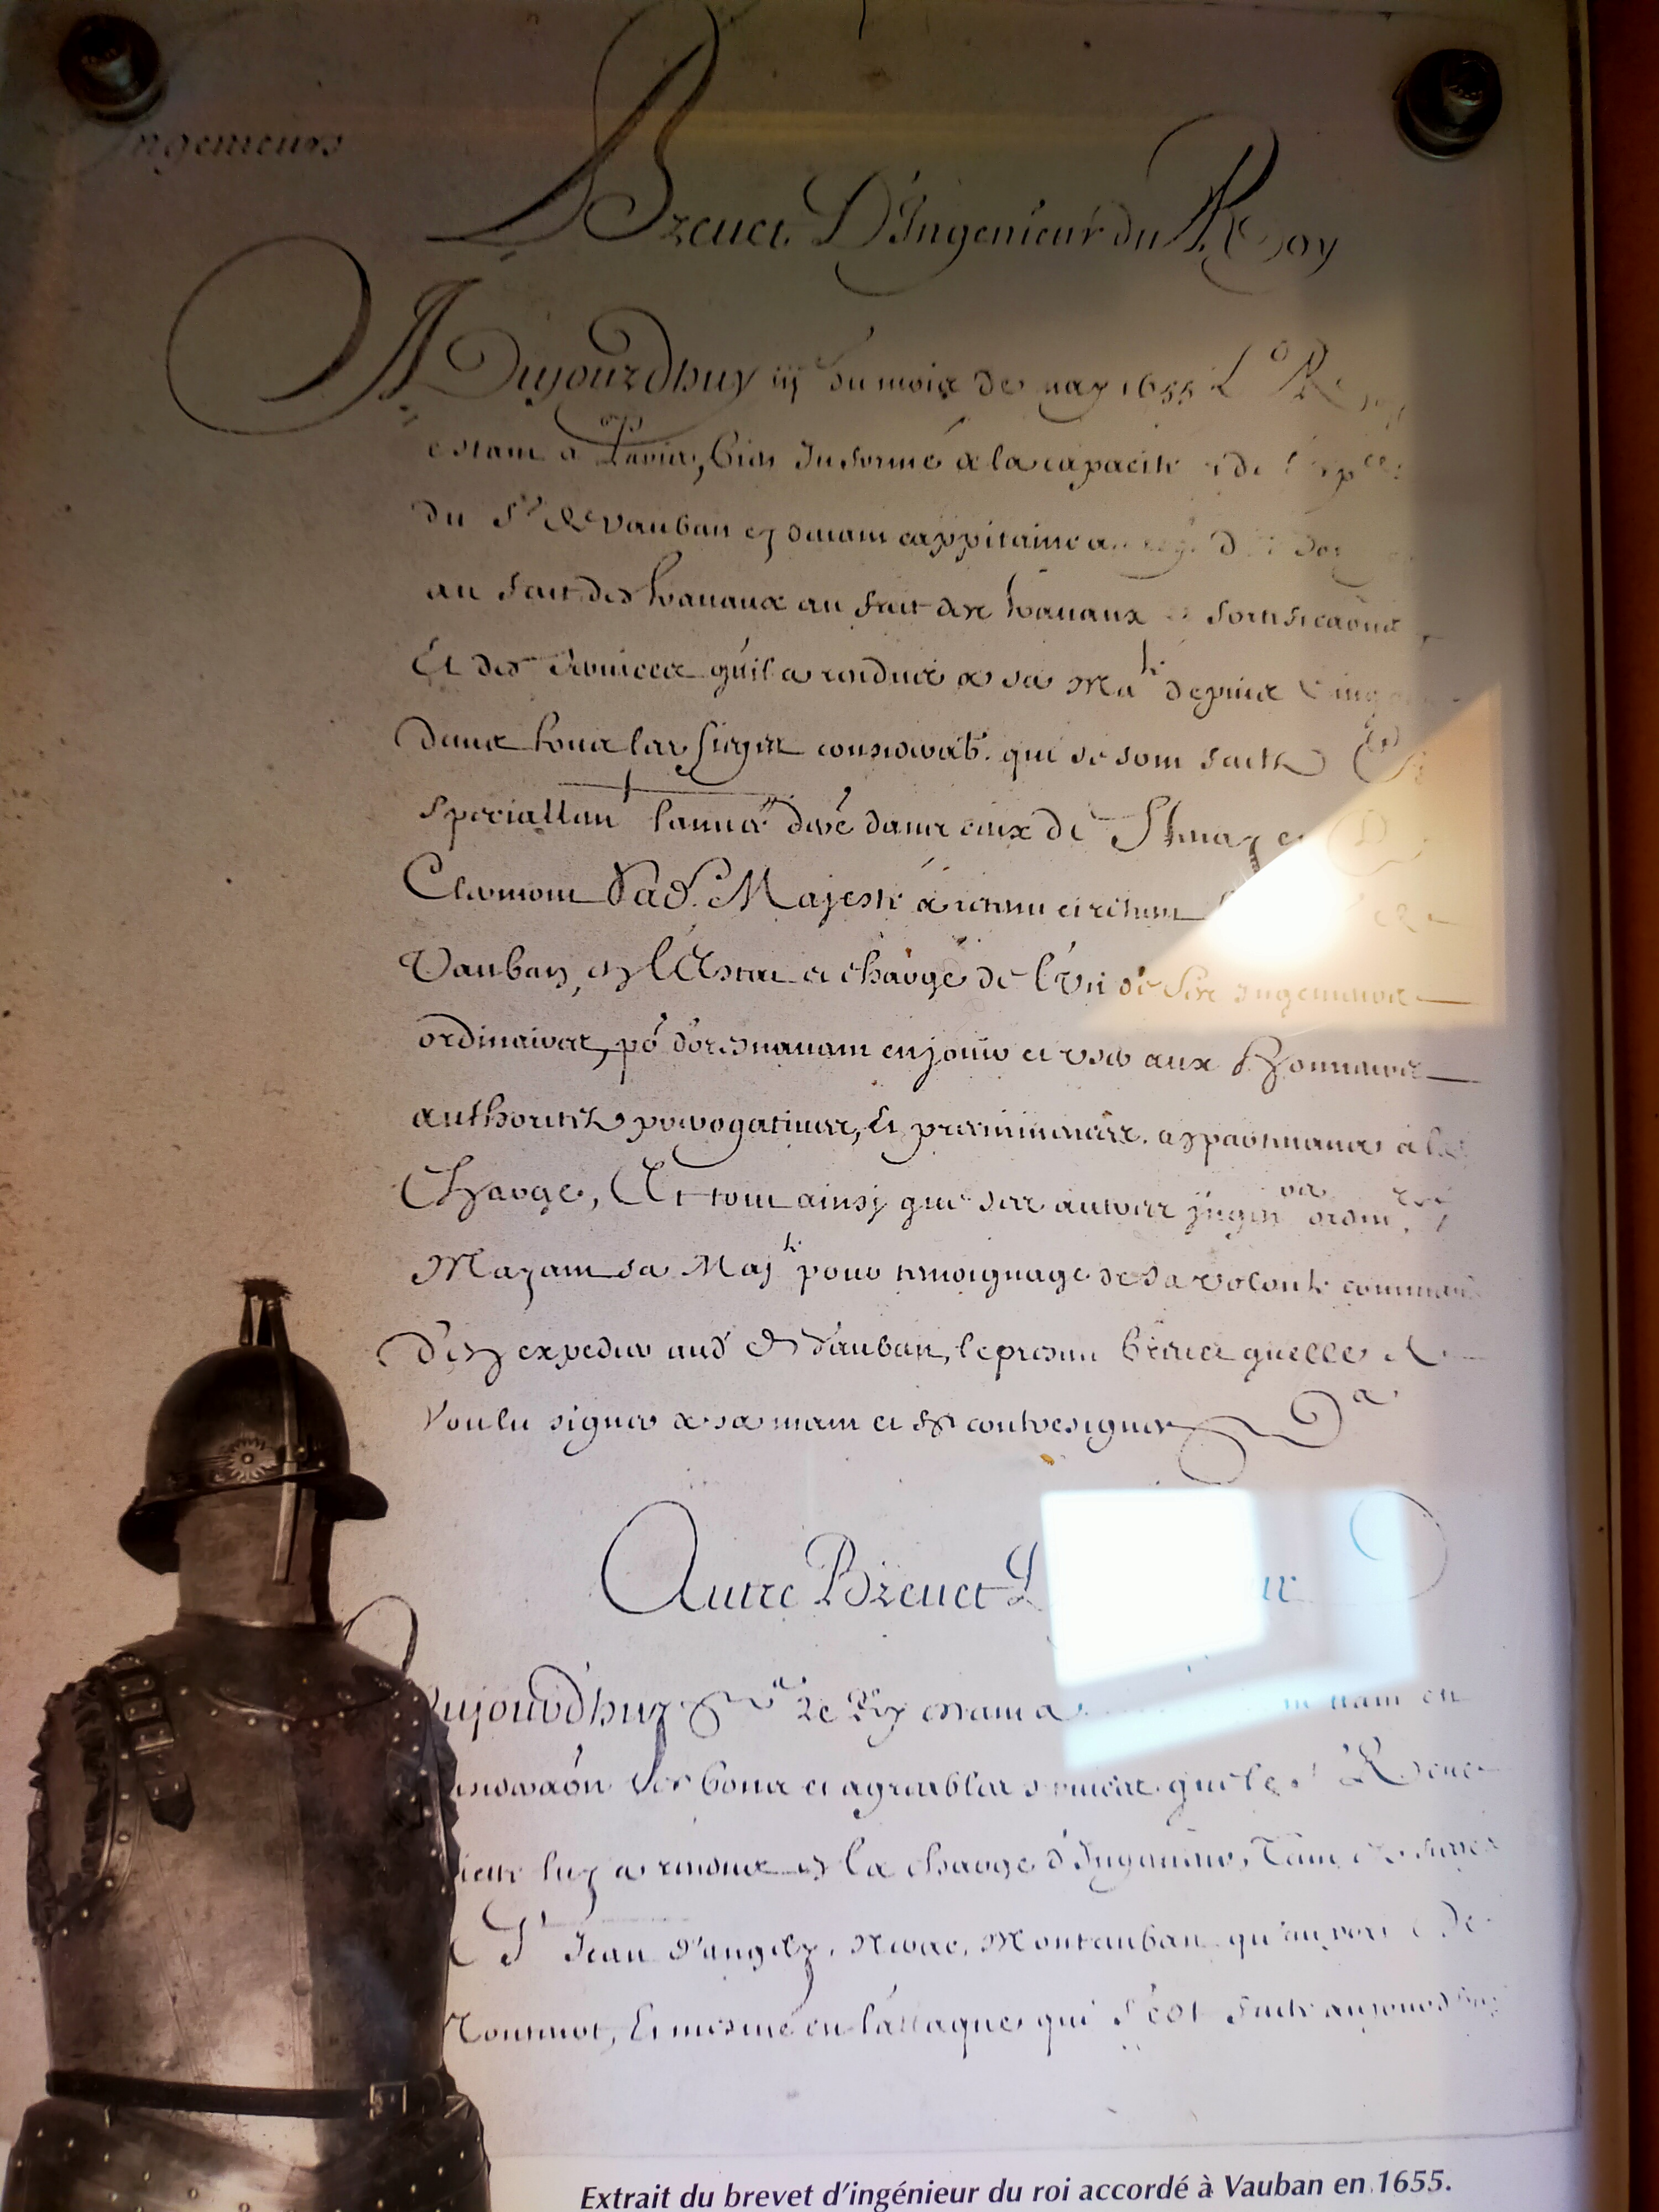 Ingenieurs
Breuet D'Ingenieur du Roy
Aujourdhuy iij du mois de may 1655 Le Roy
estant a Paris, bien Informé de la capacité et de
du Sr de Vauban cy deuant cappitaine au
au fait des trauaux au fait des trauaux et fortificaons
Et des seruices qu'il a rendus a sa Mate depuis
dans tous les sieges considerab. qui se sont faits
speciallemt l'année derre dans ceux de Stenay et
Clermont Sad. Majesté a retenu et retient
Vauban, en l'Estat et charge de l'Vn de ses Ingenieurs
ordinaires, po doresnauant en jouir et vser aux Honneurs
authoritez prerogatiues, Et preeminences appartenances à la
Charge, Et tout ainsy que ses autres jngenrs ordinres
Mayant sa Majte pour tesmoignage de sa volonté commandé
d'en expedier aud de Vauban, le present breuet quelle a
Voulu signer de sa main et contresigner
Autre Breuet
ujourdhuy Le Roy estant a
des bons et agreables seruices que le Sr
luy a rendus en la charge d'Ingenieur, Tant
St Jean d'angely, Nerac, Montauban qu'au
Et mesme en l'attaque qui s'est faite aujourdhuy
Extrait du brevet d'ingénieur du roi accordé à Vauban en 1655.